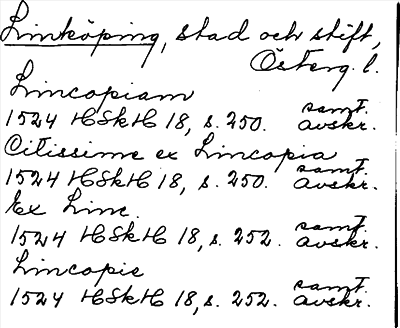 Linköping, stad och stift,
Österg. l.
Lincopiam
1524 HSkH 18, s. 250. samt. avskr.
Citissime ex Lincopia
1524 HSkH 18, s. 250. samt. avskr.
Ex Linc.
1524 HSkH 18, s. 252. samt. avskr.
Lincopie
1524 HSkH 18, s. 252. samt. avskr.